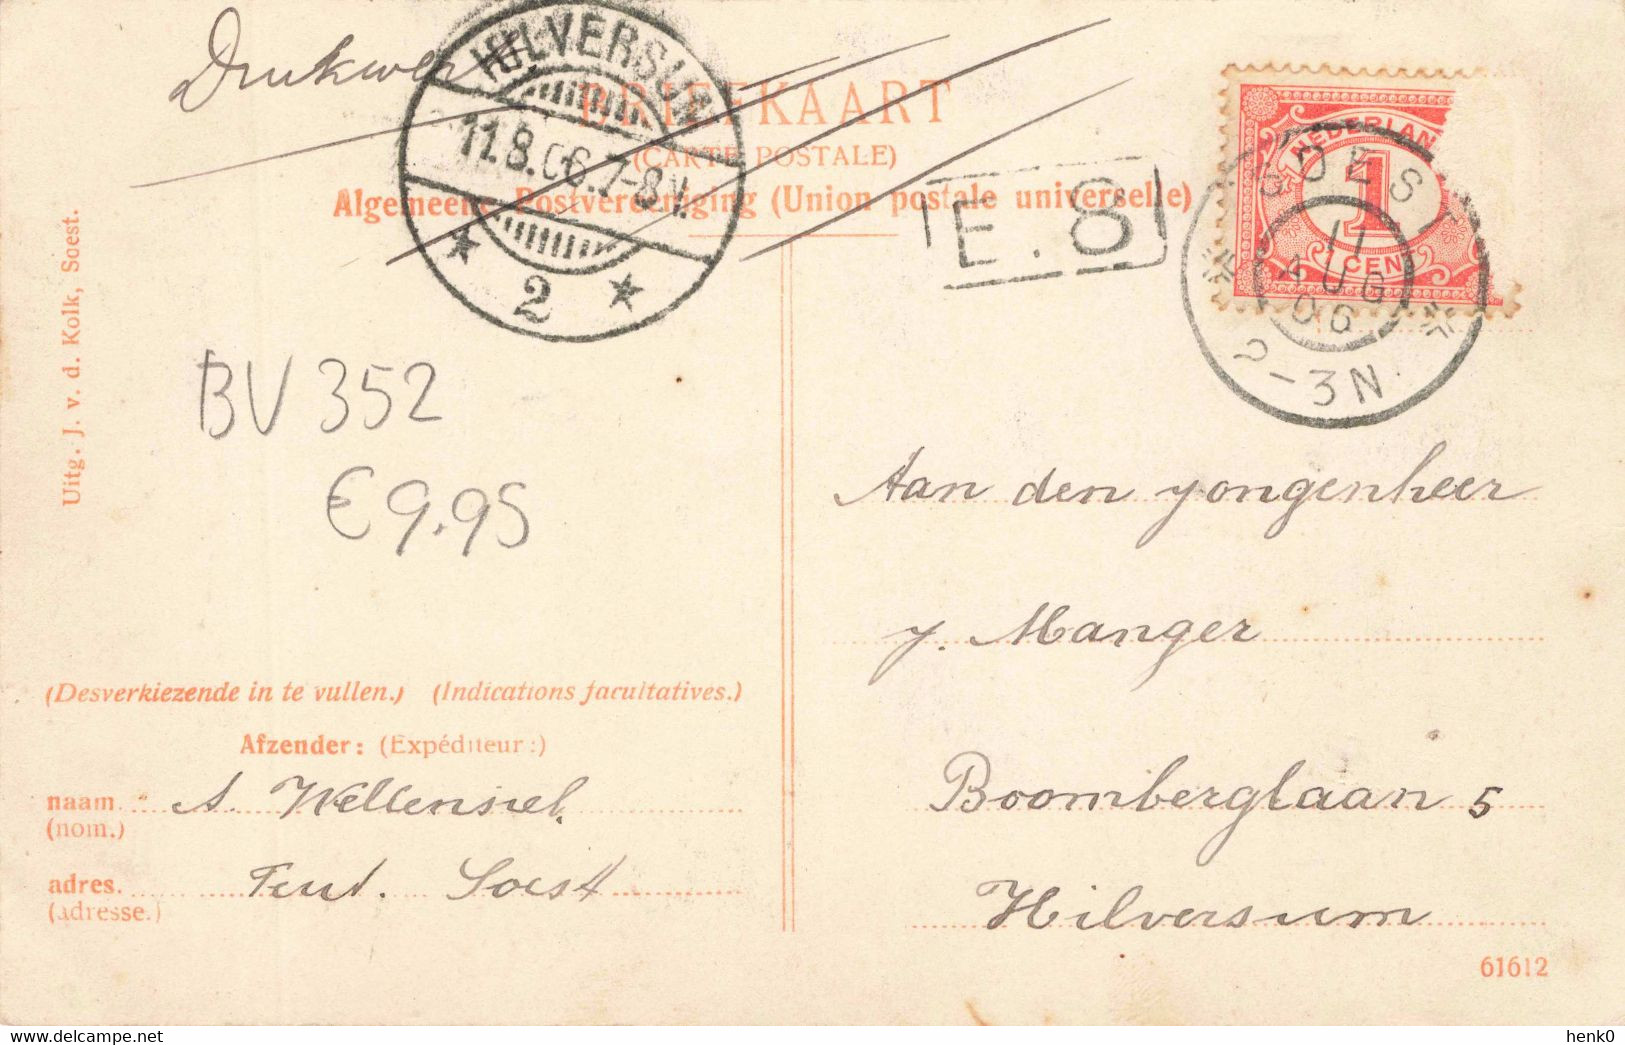 Drukwerk
HILVERSUM
11.8.06.7-8V.
2
BRIEFKAART
(CARTE POSTALE)
Algemeene Postvereeniging (Union postale universelle)
E.8
NEDERLAND
1
1 CENT
SOEST
11
AUG
06
2-3N
Uitg. J. v. d. Kolk, Soest.
BV 352
€ 9.95
Aan den jongenheer
J. Manger
Boomberglaan 5
Hilversum
(Desverkiezende in te vullen.) (Indications facultatives.)
Afzender: (Expéditeur:)
naam A. Wellensiek
(nom.)
adres. Soest
(adresse.)
61612
henk0